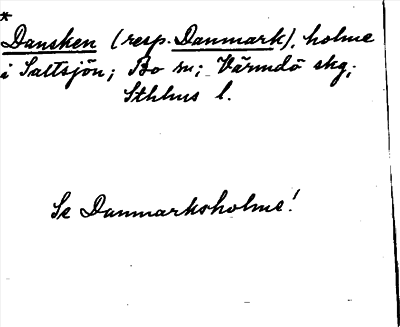 *
Dansken (resp. Danmark), holme
i Saltsjön; Bo sn; Värmdö skg;
Sthlms l.
Se Danmarksholme!